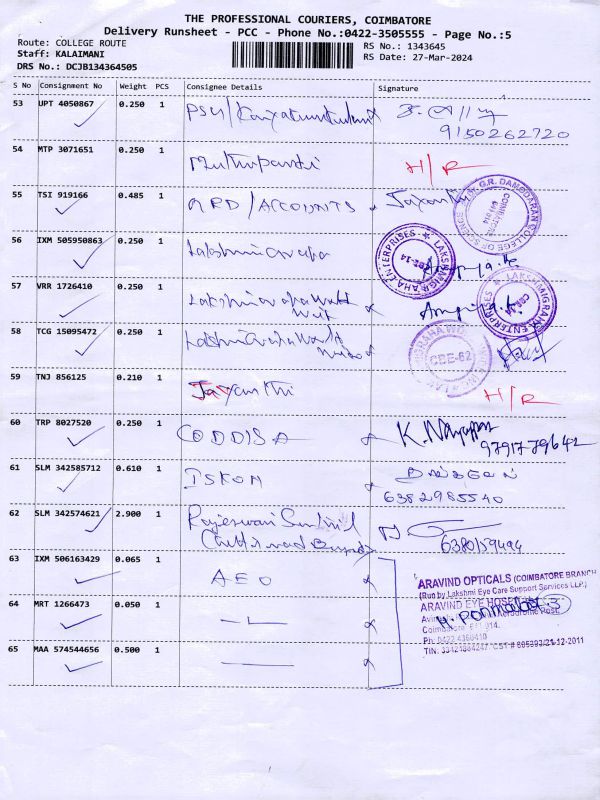 THE PROFESSIONAL COURIERS, COIMBATORE
Delivery Runsheet - PCC - Phone No.:0422-3505555 - Page No.:5
Route: COLLEGE ROUTE
RS No.: 1343645
Staff: KALAIMANI
RS Date: 27-Mar-2024
DRS No.: DCJB134364505
S No Consignment No Weight PCS Consignee Details Signature
53 UPT 4050867 0.250 1 PSG/
9150262720
54 MTP 3071651 0.250 1 Muthupandi H/R
55 TSI 919166 0.485 1 GRD/ACCOUNTS Jayanthi
G.R. DAMODARAN COLLEGE OF SCIENCE
COIMBATORE
641 014
56 IXM 505950863 0.250 1 Lakshmigraha
LAKSHMIGRAHA ENTERPRISES
CBE-14
57 VRR 1726410 0.250 1
LAKSHMIGRAHA ENTERPRISES
58 TCG 15095472 0.250 1
CBE-62
59 TNJ 856125 0.210 1 Jayanthi H/R
60 TRP 8027520 0.250 1 CODDISA K.
9791779642
61 SLM 342585712 0.610 1 ISKON
6382985540
62 SLM 342574621 2.900 1 Rajeswari
6380159494
63 IXM 506163429 0.065 1 AEO
64 MRT 1266473 0.050 1
65 MAA 574544656 0.500 1
ARAVIND OPTICALS (COIMBATORE BRANCH)
(Run by Lakshmi Eye Care Support Services LLP.)
ARAVIND EYE HOSPITAL
Aerodrome Post,
Coimbatore - 641 014.
Ph: 0422 4360410
TIN: 33424884247